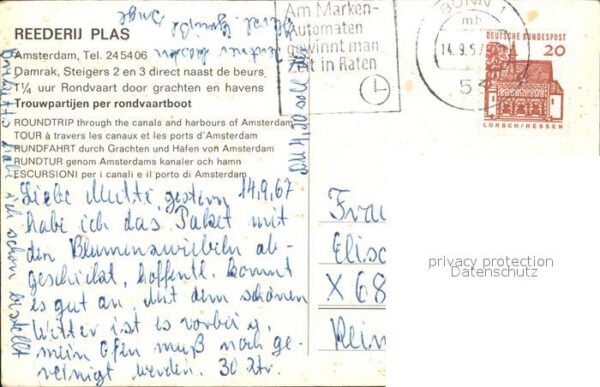 REEDERIJ PLAS
Amsterdam, Tel. 245406
Damrak, Steigers 2 en 3 direct naast de beurs
1¼ uur Rondvaart door grachten en havens
Trouwpartijen per rondvaartboot
ROUNDTRIP through the canals and harbours of Amsterdam
TOUR à travers les canaux et les ports d'Amsterdam
RUNDFAHRT durch Grachten und Häfen von Amsterdam
RUNDTUR genom Amsterdams kanaler och hamn
ESCURSIONI per i canali e il porto di Amsterdam
Liebe Mutti, gestern 14.9.67
habe ich das Paket mit
den Blumenzwiebeln ab-
geschickt, hoffentl. kommt
es gut an. Mit dem schönen
Wetter ist es vorbei,
mein Ofen muß noch ge-
reinigt werden. 30 Ztr.
habe ich schon bestellt
Inge
Am Marken-
Automaten
gewinnt man
Zeit in Raten
BONN 1
mb
14.9.67
DEUTSCHE BUNDESPOST
20
LORSCH/HESSEN
Frau
Elis
X 68
privacy protection
Datenschutz